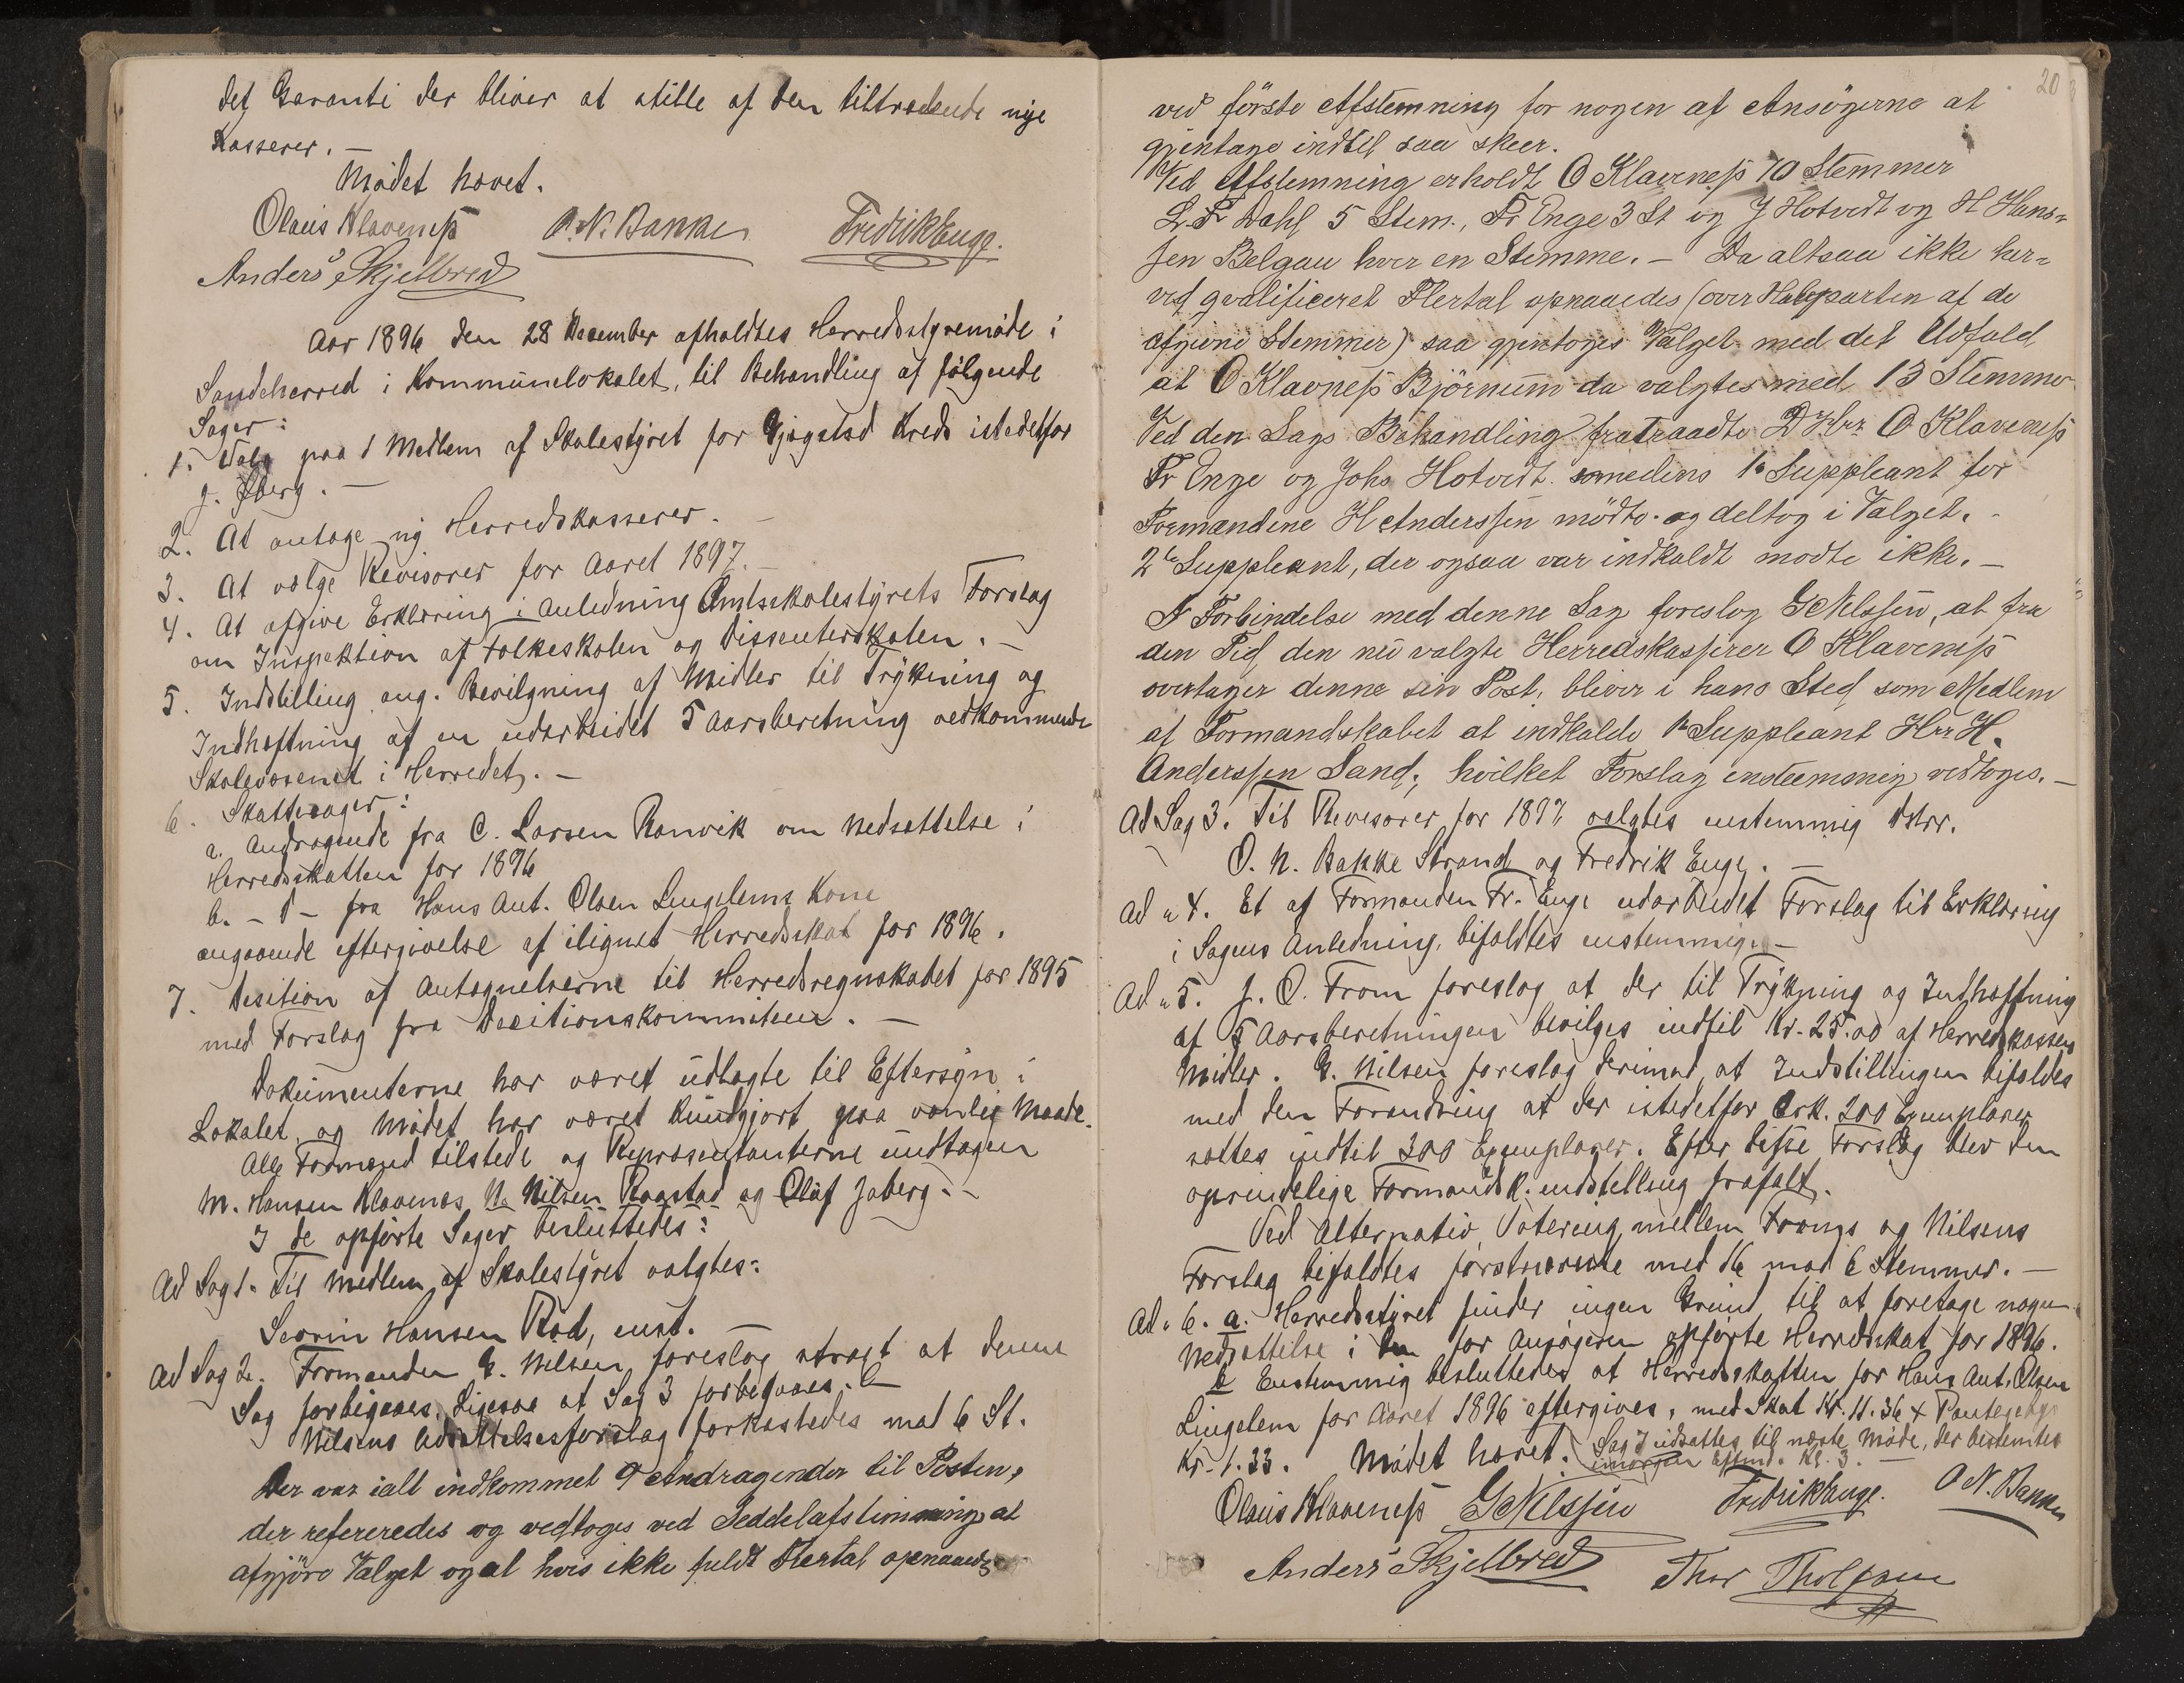 det Garanti der bliver at stille af den tiltrædende nye
Kasserer. —
Mødet hævet.
Olaus Klaveness O. N. Bakke Fredrik Enge.
Anders Skjelbred
Aar 1896 den 28 December afholdtes Herredsstyremøde i
Sandeherred i Kommunelokalet, til Behandling af følgende
Sager:
1. Valg paa 1 Medlem af Skolestyret for Gjøgstad Kreds istedetfor
J. Øberg. —
2. At antage ny Herredskasserer. —
3. At vælge Revisorer for Aaret 1897. —
4. At afgive Erklæring i Anledning Amtsskolestyrets Forslag
om Inspektion af Folkeskolen og Dissenterskolen. —
5. Indstilling ang. Bevilgning af Midler til Trykning og
Indhæftning af en udarbeidet 5 Aarsberetning vedkommende
Skolevæsenet i Herredet. —
6. Skattesager:
a. Andragende fra C. Larsen Ranvik om Nedsættelse i
Herredsskatten for 1896
b. — 1 — fra Hans Ant. Olsen Lingelems Kone
angaaende eftergivelse af ilignet Herredsskat for 1896.
7. Desition af Antegnelserne til Herredsregnskabet for 1895
med Forslag fra Decitionskommiteen. —
Dokumenterne har været udlagte til Eftersyn i
Lokalet, og Mødet har været kundgjort paa vanlig Maade.
Alle Formænd tilstede og Repræsentanterne undtagen
M. Hansen Klavenæs, N. Nilsen Raastad og Oluf Jaberg. —
I de opførte Sager besluttedes:
Ad Sag 1. Til Medlem af Skolestyret valgtes:
Severin Hansen Rød, enst. —
Ad Sag 2. Formanden G. Nilsen foreslog straxt at denne
Sag forbigaaes. Ligesaa at Sag 3 forbigaaes. —
Nilsens Udsættelsesforslag forkastedes mod 6 St.
Der var ialt indkommet 9 Andragender til Posten,
der refereredes og vedtoges ved Seddelafstemning at
afgjøre Valget og at hvis ikke fuldt Flertal opnaaedes
20
ved første Afstemning for nogen af Ansøgerne at
gjentage indtil saa skeer.
Ved Afstemning erholdt O Klaveness 10 Stemmer
L. Fr Dahl 5 Stem., Fr Enge 3 St og J Hotvedt og H Hans-
sen Belgau hver en Stemme. — Da altsaa ikke her-
ved qvalificeret Flertal opnaaedes (over Halvparten af de
afgivne Stemmer) saa gjentoges Valget med det Udfald
at O Klavness Bjørnum da valgtes med 13 Stemmer
Ved den Sags Behandling fratraadte D'Hrr O Klaveness
Fr Enge og Johs Hotvedt. somedens 1e Suppleant for
Formændene H Anderssen mødte og deltog i Valget. —
2de Suppleant, der ogsaa var indkaldt mødte ikke. —
I Forbindelse med denne Sag foreslog G Nilssen, at fra
den Tid den nu valgte Herredskasserer O Klaveness
overtager denne sin Post, bliver i hans Sted som Medlem
af Formandskabet at indkalde 1e Suppleant Hrr H.
Anderssen Sand; hvilket Forslag ensteemmig vedtoges. —
Ad Sag 3. Til Revisorer for 1897 valgtes enstemmig D'Hrr.
O. N. Bakke Strand og Fredrik Enge. —
Ad " 4. Et af Formanden Fr. Enge udarbeidet Forslag til Erklæring
i Sagens Anledning, bifaldtes enstemmig. —
Ad " 5. J. O. From foreslog at der til Trykning og Indhæftning
af 5 Aarsberetningen bevilges indtil Kr. 25.00 af Herredskassens
Midler. G. Nilsen foreslog derimod, at Indstillingen bifaldes
med den Forandring at der istedetfor cirk. 200 Exemplarer
sættes indtil 300 Exemplarer. Efter disse Forslag blev den
oprindelige Formandsk. indstilling frafalt.
Ved Alternativ Votering mellem Froms og Nilsens
Forslag bifaldtes førstnævnte med 16 mod 6 Stemmer. —
Ad " 6. a. Herredsstyret finder ingen Grund til at foretage nogen
Nedsættelse i den for Ansøgeren opførte Herredsskat for 1896.
b Enstemmig besluttedes at Herredsskatten for Hans Ant. Olsen
Lingelem for Aaret 1896 eftergives, med Skat Kr. 11.36 + Pantegebyr
Kr. 1.33. Mødet hævet. Sag 7 udsattes til næste Møde, der bestemtes
imorgen Eftmd. Kl. 3. —
Olaus Klaveness G Nilssen Fredrik Enge. O N. Bakke
Anders Skjelbred Thor Tholfsen